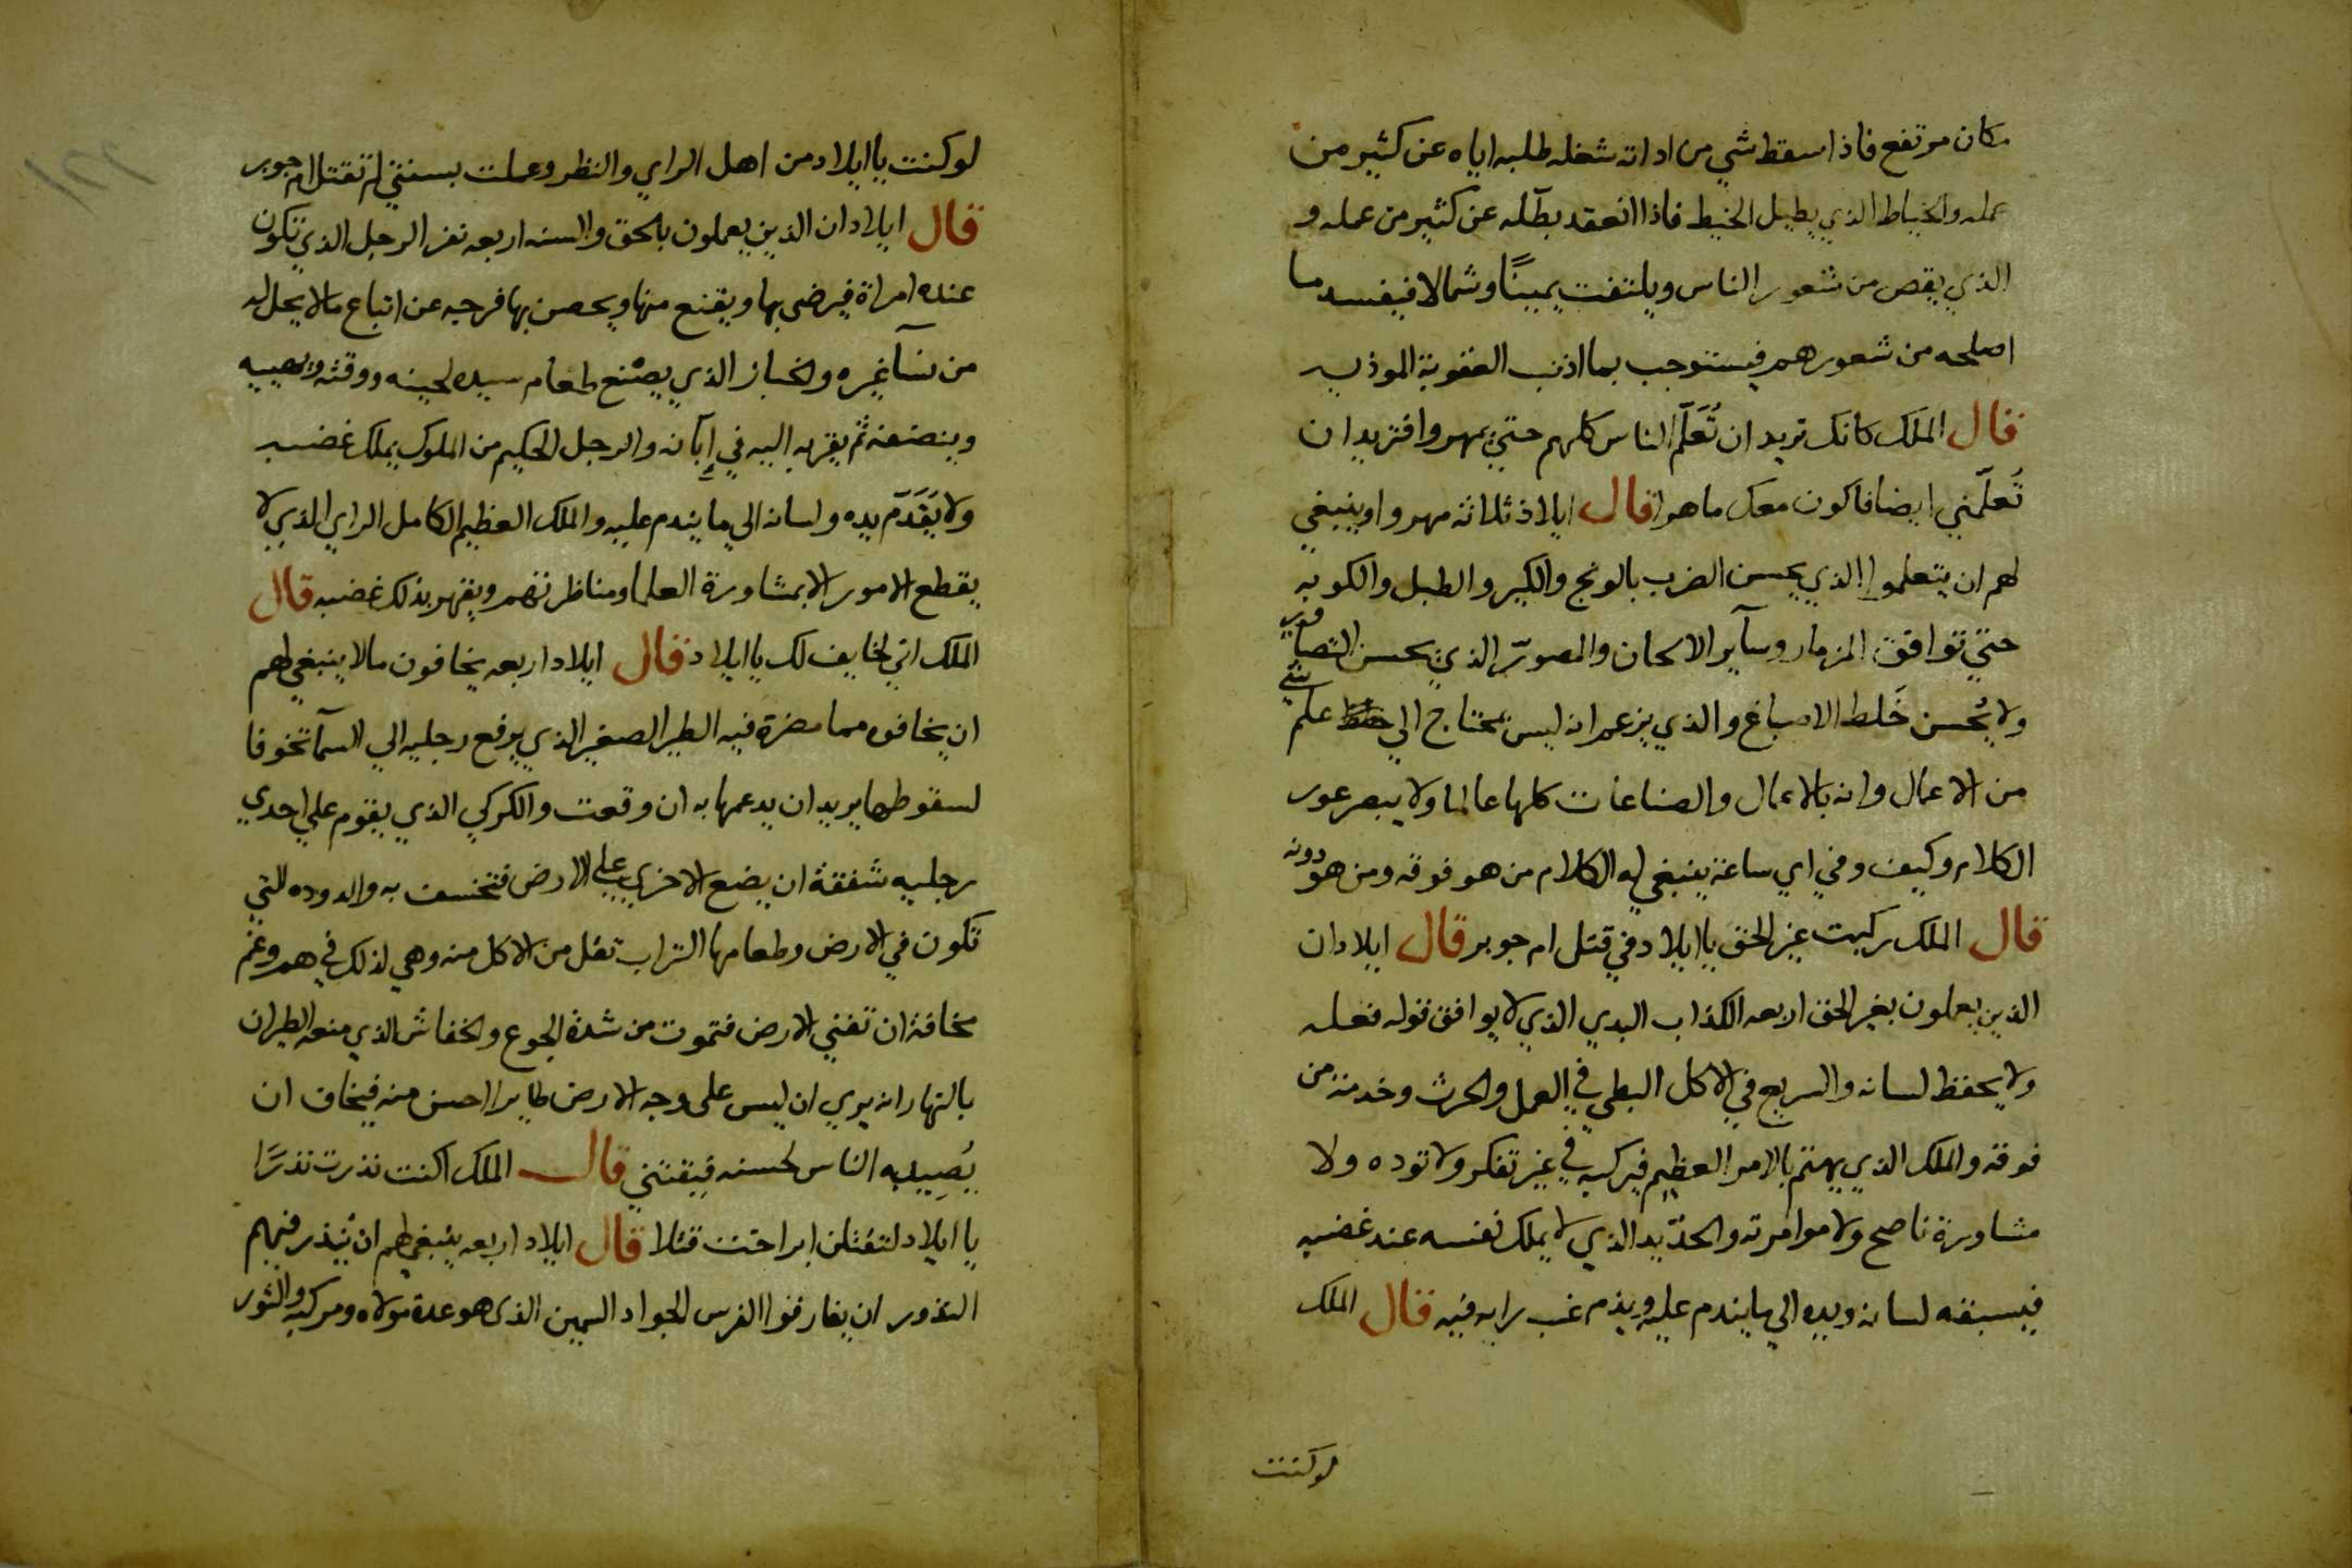 مكان مرتفع فاذا سقط شي من اداته شغله طلبه اياه عن كثير من
عمله والخياط الذي يطيل الخيط فاذا انعقد بطّله عن كثير من عمله و
الذي يقص من شعور الناس ويلتفت يمينًا وشمالا فيفسد ما
اصلحه من شعورهم فيستوجب بما اذنب العقوبة الموذيه
قال الملك كانك تريد ان تُعَلّم الناس كلهم حتي يمهروا فتريد ان
تُعلّمني ايضا فاكون معك ماهرا قال ايلاذ ثلاثه مهروا وينبغي
لهم ان يتعلموا الذي يحسن الضرب بالونج والكير والطبل والكوبه
حتي توافق المزمار وسآير الالحان والمصوّر الذي يحسن التصاوير
ولا يُحسن خَلط الاصباغ والذي يزعم انه ليس بمحتاج الي علم شي
من الاعمال وانه بالاعمال والصناعات كلها عالما ولا يبصر عور
الكلام وكيف وفي اي ساعة ينبغي له الكلام من هو فوقه ومن هو دونه
قال الملك ركبت غير الحق يا ايلاد في قتل ام جوبر قال ايلاد ان
الذين يعملون بغير الحق اربعه الكذاب البدي الذي لا يوافق قوله فعله
ولا يحفظ لسانه والسريع في الاكل البطي في العمل والحرث وخدمة من
فوقه والملك الذي يهتم بالامر العظيم فيركبه في غير تفكر ولا توده ولا
مشاورة ناصح ولا موامرته والحدّيد الذي لا يملك نفسه عند غضبه
فيسبقه لسانه ويده الي ما يندم عليه ويذم غب رايه فيه قال الملك
لو كنت
لو كنت يا ايلاد من اهل الراي والنظر وعملت بسنتي لم تقتل ام جوبر
قال ايلاد ان الذين يعملون بالحق والسنه اربعه نفر الرجل الذي تكون
عنده امراة فيرضى بها ويقنع منها ويحصن بها فرجه عن اتباع ما لا يحل له
من نسآ غيره والخباز الذي يصنع طعام سيده لحينه ووقته ويهييه
وينضعه ثم يقربه اليه في إبّانه والرجل الحكيم من الملوك يملك غضبه
ولا يَقَدّم يده ولسانه الى ما يندم عليه والملك العظيم الكامل الراي الذي لا
يقطع الامور الا بمشاورة العلما ومناظرتهم ويقهر بذلك غضبه قال
الملك اني لخايف لك يا ايلاد قال ايلاد اربعه يخافون ما لا ينبغي لهم
ان يخافوه مما مضرة فيه الطير الصغير الذي يرفع رجليه الي السمآ تخوفا
لسقوطها يريد ان يدعمها به ان وقعت والكركي الذي يقوم علي احدي
رجليه شفقة ان يضع الاخري علي الارض فتخسف به والدوده التي
تكون في الارض وطعامها التراب تقل من الاكل منه وهي لذلك في هم وغم
مخافة ان تفني الارض فتموت من شدة الجوع والخفاش الذي منعه الطيران
بالنهار انه يري ان ليس على وجه الارض طايرا احسن منه فيخاف ان
يُصِيبه الناس لحسنه فيقتني قال الملك اكنت نذرت نذرًا
يا ايلاد لتقتلن ايراخت قتلا قال ايلاد اربعه ينبغي لهم ان يُنذر فيهم
النذور ان يفارقوا الفرس الجواد السمين الذى هو عدة مولاه ومركبه والثور